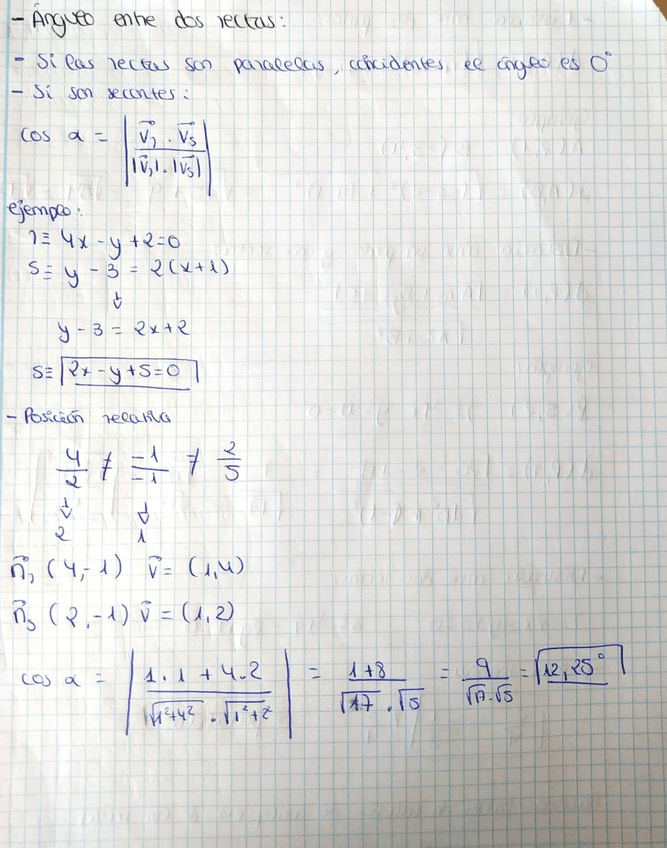 - Ángulo entre dos rectas:
- Si las rectas son paralelas, coincidentes el ángulo es 0°
- Si son secantes:
cos α = | v⃗r · v⃗s / |v⃗r| · |v⃗s| |
ejemplo:
r ≡ 4x - y + 2 = 0
s ≡ y - 3 = 2(x+1)
↓
y - 3 = 2x + 2
s ≡ 2x - y + 5 = 0
- Posición relativa
4/2 ≠ -1/-1 ≠ 2/5
↓ ↓
2 1
n⃗r (4, -1) v⃗ = (1, 4)
n⃗s (2, -1) v⃗ = (1, 2)
cos α = | 1·1 + 4·2 / √1²+4² · √1²+2² | = 1+8 / √17 · √5 = 9 / √17 · √5 = 12,25°